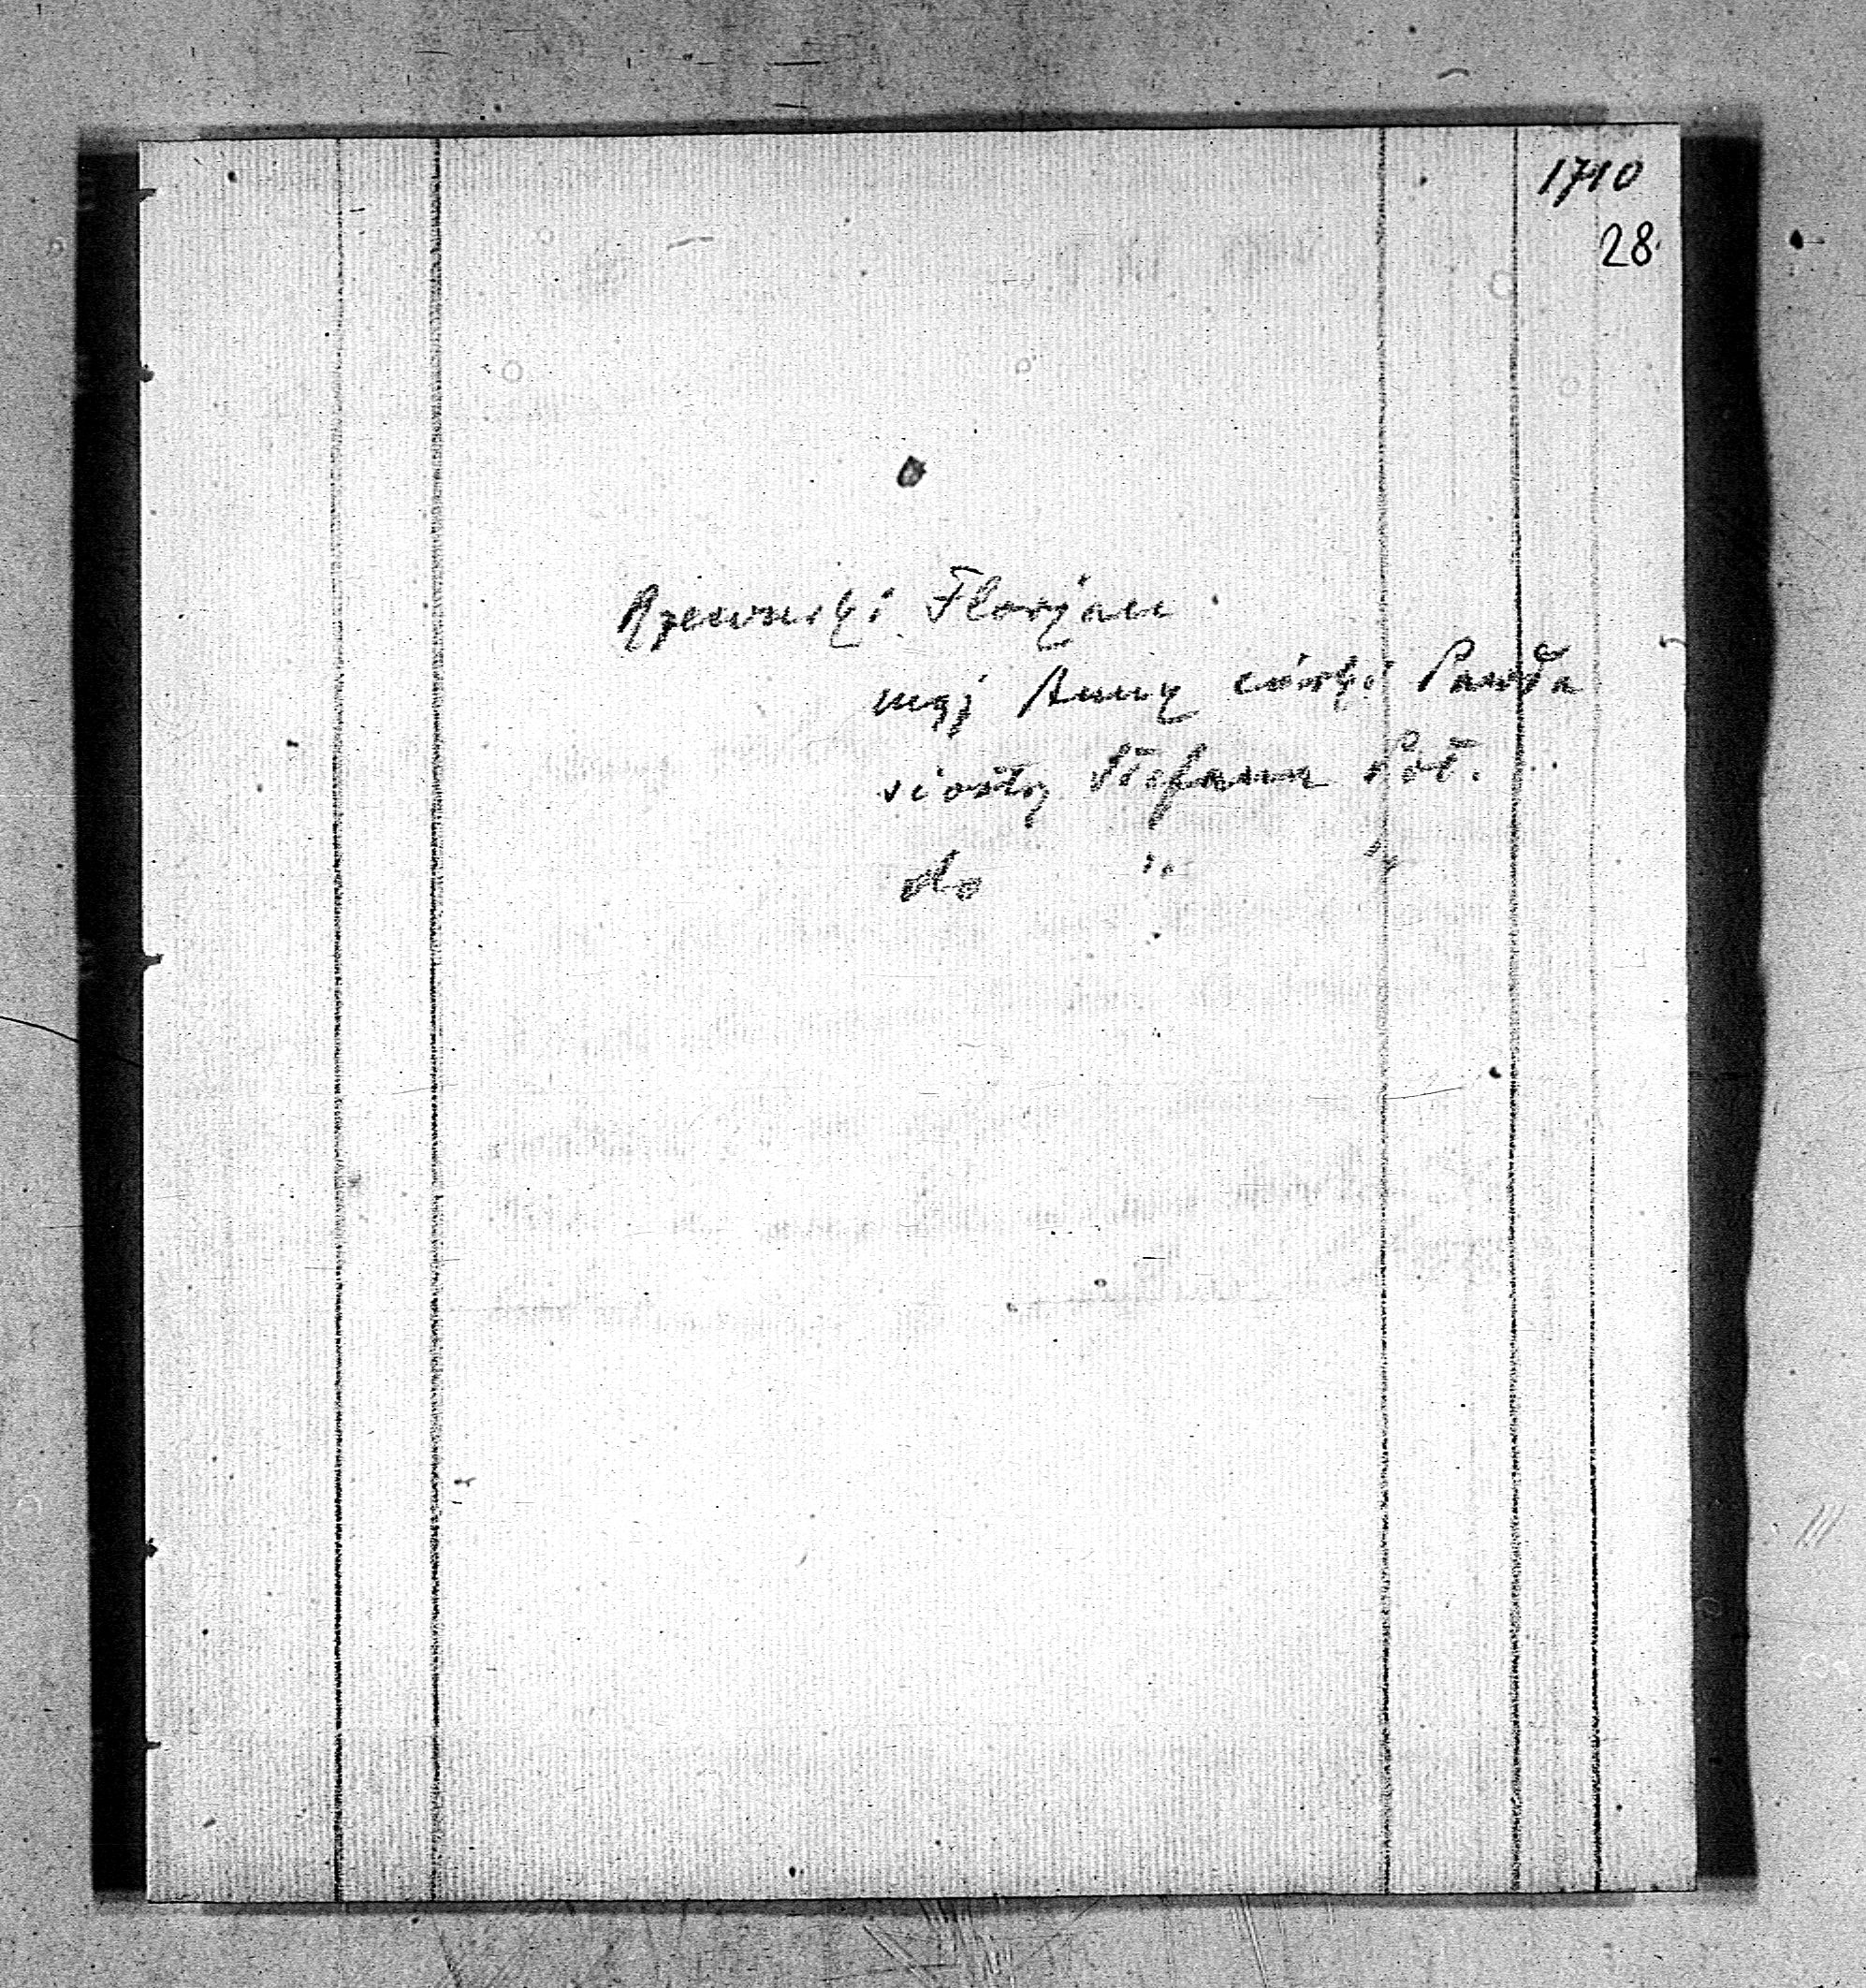 1710
28
Rzewuski Florjan
mąż Anny córki Pawła
siostry Stefana Pot.
do "